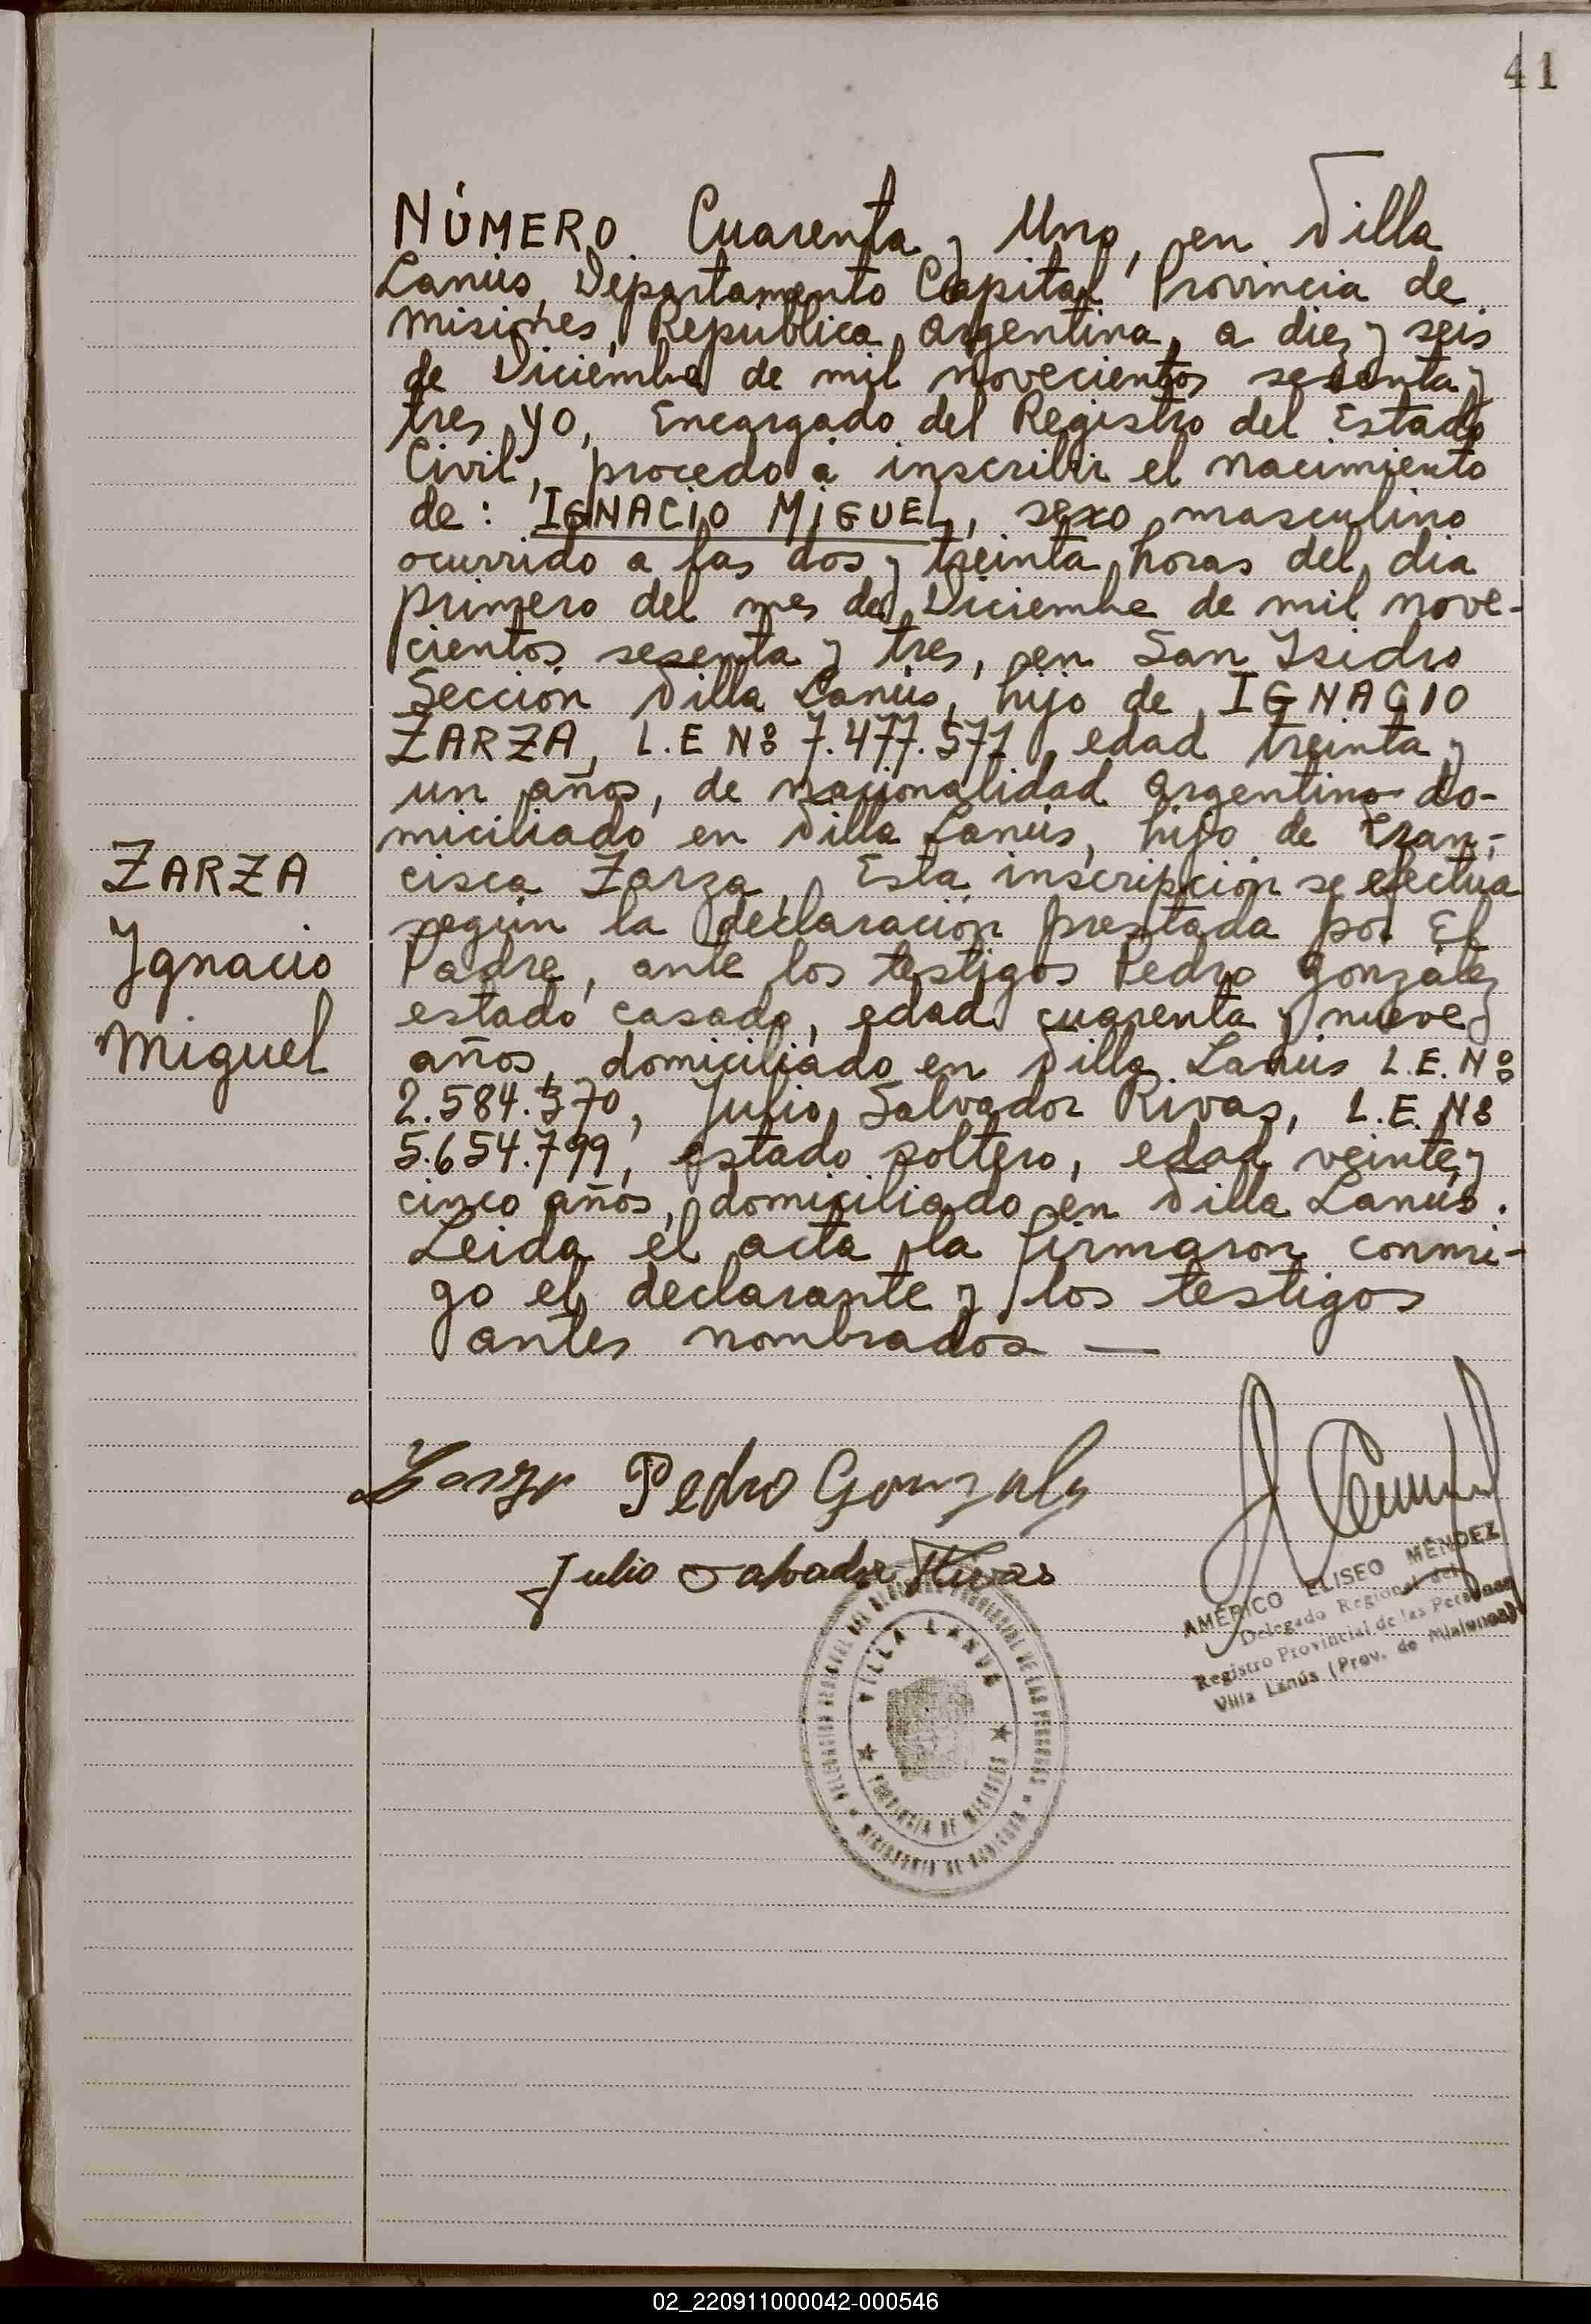 41
NÚMERO Cuarenta y Uno, en Villa
Lanús, Departamento Capital Provincia de
Misiones, República Argentina, a diez y seis
de Diciembre de mil novecientos sesenta y
tres, yo, Encargado del Registro del Estado
Civil, procedo a inscribir el nacimiento
de: IGNACIO MIGUEL, sexo masculino
ocurrido a las dos y treinta horas del dia
primero del mes de Diciembre de mil nove-
cientos sesenta y tres, en San Isidro
Sección Villa Lanús, hijo de IGNACIO
ZARZA, L.E Nº 7.477.571, edad treinta y
un años, de nacionalidad argentino do-
miciliado en Villa Lanús, hijo de Fran-
cisca Zarza, Esta inscripción se efectua
según la declaración prestada por El
Padre, ante los testigos Pedro González
estado casado, edad cuarenta y nueve
años, domiciliado en Villa Lanús L.E. Nº
2.584.370, Julio Salvador Rivas, L.E. Nº
5.654.799, estado soltero, edad veinte y
cinco años, domiciliado en Villa Lanús.
Leida el acta la firmaron conmi-
go el declarante y los testigos
antes nombrados —
ZARZA
Ygnacio
Miguel
Zarza Pedro Gonzalez
Julio Salvador Rivas
AMÉRICO ELISEO MÉNDEZ
Delegado Regional del
Registro Provincial de las Personas
Villa Lanús (Prov. de Misiones)
VILLA LANUS
PROVINCIA DE MISIONES
PROVINCIAL DE LAS PERSONAS
02_220911000042-000546